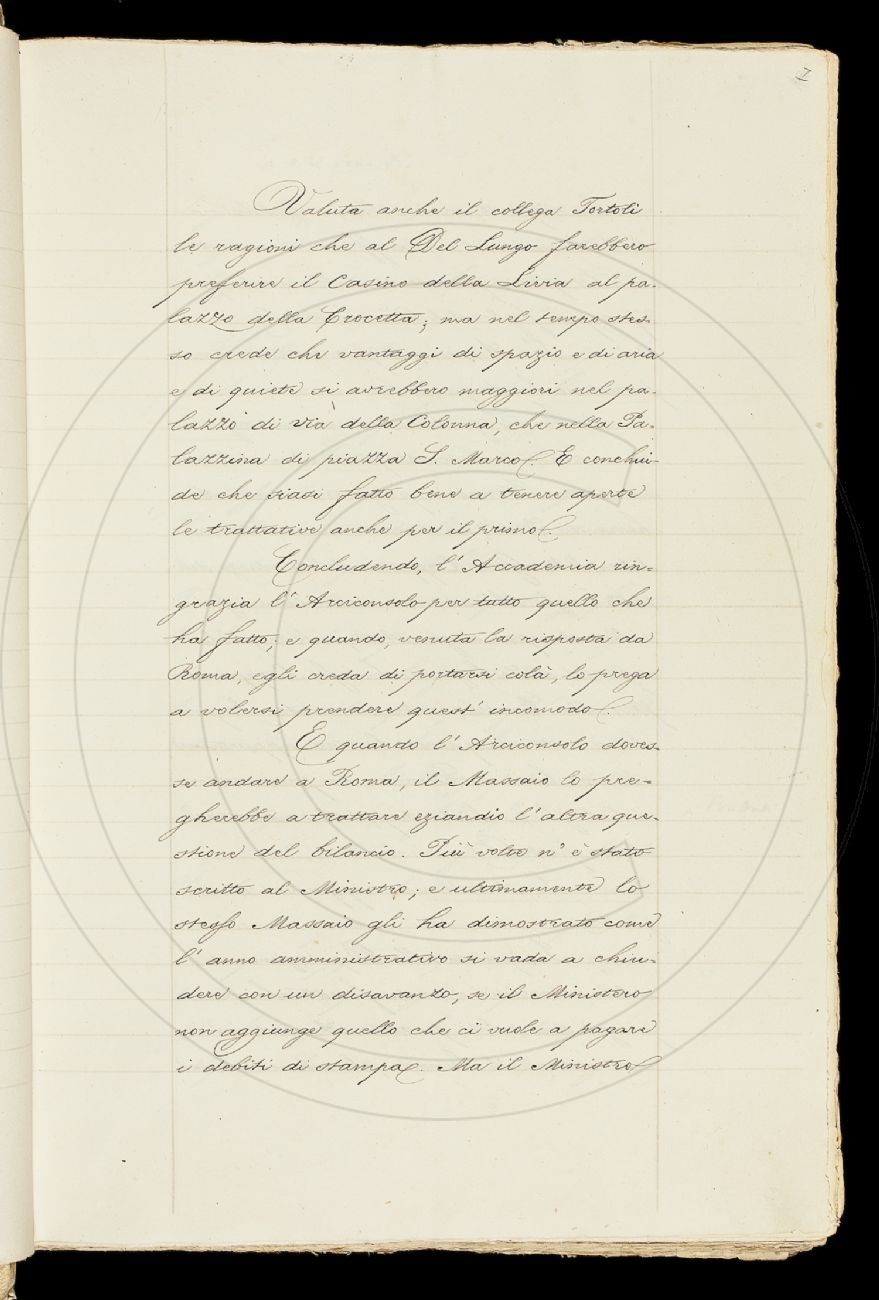 7
Valuta anche il collega Tortoli
le ragioni che al Del Lungo farebbero
preferire il Casino della Livia al pa-
lazzo della Crocetta; ma nel tempo stes-
so crede che vantaggi di spazio e di aria
e di quiete si avrebbero maggiori nel pa-
lazzo di via della Colonna, che nella Pa-
lazzina di piazza S. Marco. E conchiu-
de che siasi fatto bene a tenere aperte
le trattative anche per il primo.
Concludendo, l'Accademia rin-
grazia l'Arciconsolo per tutto quello che
ha fatto; e quando, venuta la risposta da
Roma, egli creda di portarsi colà, lo prega
a volersi prendere quest' incomodo.
E quando l'Arciconsolo doves-
se andare a Roma, il Massaio lo pre-
gherebbe a trattare eziandio l'altra que-
stione del bilancio. Più volte n' è stato
scritto al Ministro; e ultimamente lo
stesso Massaio gli ha dimostrato come
l'anno amministrativo si vada a chiu-
dere con un disavanzo, se il Ministero
non aggiunge quello che ci vuole a pagare
i debiti di stampa. Ma il Ministro